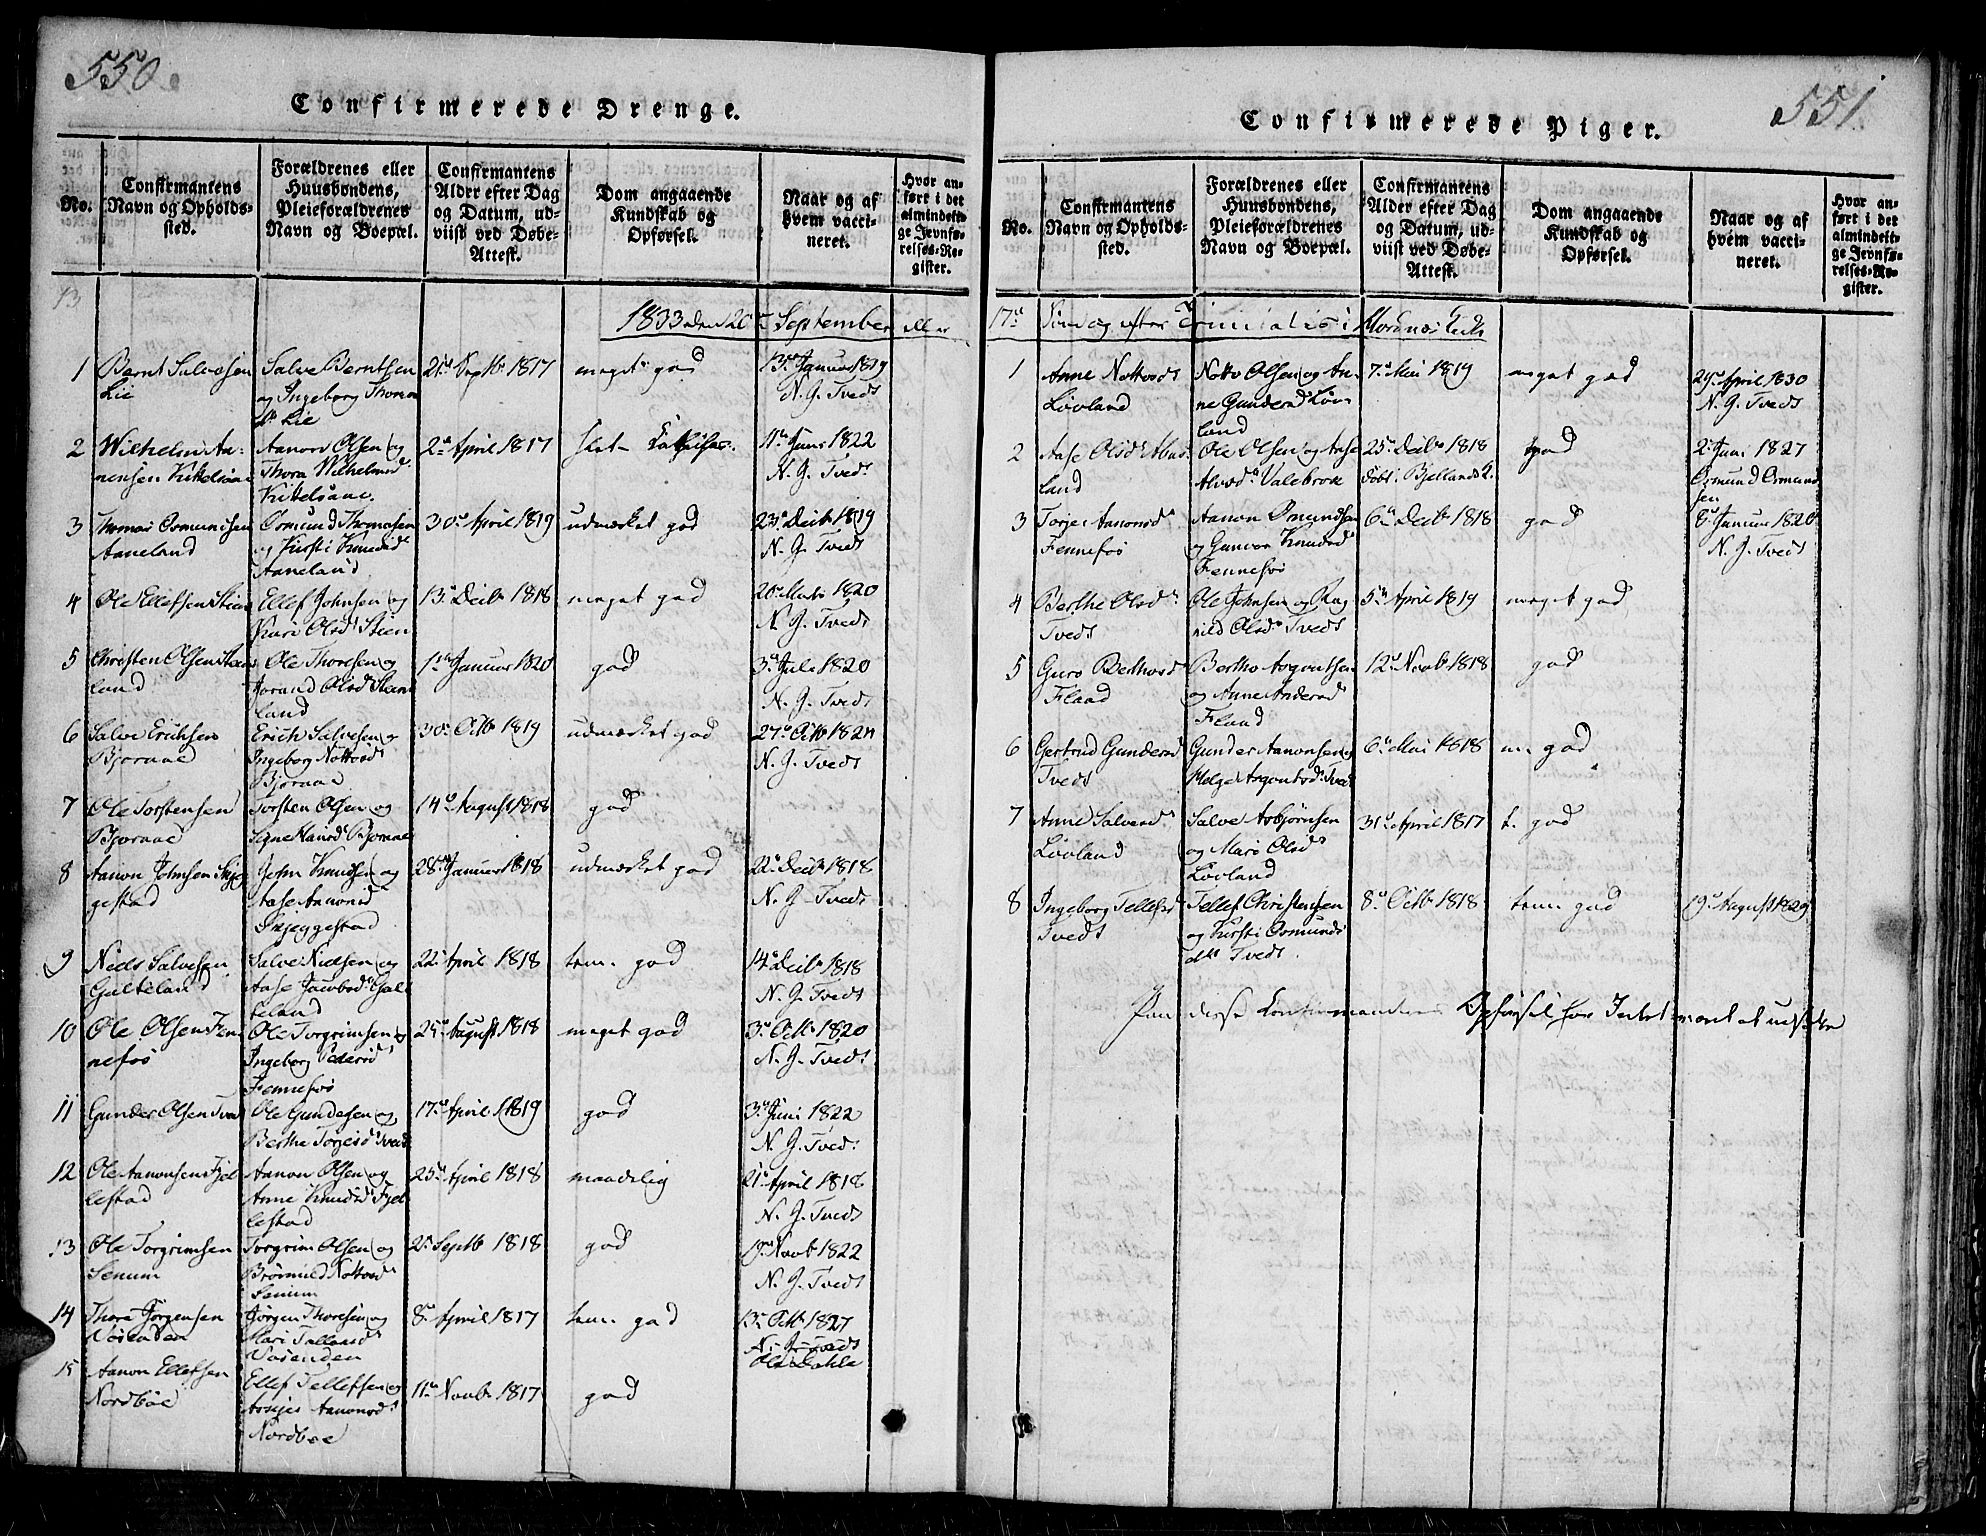 550.
Confirmerede Drenge.
No.
Confirmantens
Navn og Opholds-
sted.
Forældrenes eller
Huusbondens,
Pleieforældrenes
Navn og Boepæl.
Confirmantens
Alder efter Dag
og Datum, ud-
viist ved Døbe-
Attest.
Dom angaaende
Kundskab og
Opførsel.
Naar og af
hvem vacci-
neret.
Hvor an-
ført i det
almindeli-
ge Jevnfø-
relses-Re-
gister.
1833 den September eller
1 Bernt Salvesen
Lie
Salve Berntsen
og Ingeborg
Lie
21de Septbr 1817
meget god
13de Januar 1819
N. G. Tveds
2 Wilhelm Aa-
nensen Kittelsaae
Aanon Olsen og
Thora Wilhelmsd
Kittelsaae.
2den April 1817
slet
11te Juni 1822
N. G. Tveds
3 Thomas Osmundsen
Aaneland
Osmund Thomasen
og Kirsti Knudsd
Aaneland
30te April 1819
udmærket god
23de Decbr 1819
N. G. Tveds
4 Ole Ellefsen Stien
Ellef Johnsen og
Kari Olsd Stien
13de Decbr 1818
meget god
20de Marts 1820
N. G. Tveds
5 Christen Olsen Stein
land
Ole Thoresen og
Jorand Olsd Stein
land
1ste Januar 1820
god
3de Juli 1820
N. G. Tveds
6 Salve Erichsen
Bjoraae
Erich Salvesen og
Ingeborg Nottosd
Bjoraae
30te Octb 1819
udmærket god
27de Octb 1824
N. G. Tveds
7 Ole Torstensen
Bjoraae
Torsten Olsen og
Signe Hansd Bjoraae
14de August 1818
god
8 Aanon Johnsen Skjeg
gestad
John Knudsen og
Aase Aanonsd
Skjeggestad
28de Januar 1818
udmærket god
22de Decb 1818
N. G. Tveds
9 Niels Salvesen
Galteland
Salve Nielsen og
Aase Jacobsd Galt
teland
22de April 1818
tem. god
14de Decb 1818
N. G. Tveds
10 Ole Olsen Fen-
nefos
Ole Torgrimsen og
Ingeborg Pedersd
Fennefos
24de August 1818
meget god
3de Octb 1820
N. G. Tveds
11 Gunder Olsen Tved
Ole Gundersen og
Berthe Torjesd Tveds
17de April 1819
god
3de Juni 1822
N. G. Tveds
12 Ole Aanonsen Fjel
lestad
Aanon Olsen og
Anne Knudsd Fjel
lestad
25de April 1818
maadelig
21de April 1818
N. G. Tveds
13 Ole Torgrimsen
Senum
Torgrim Olsen og
Brønild Nottosd
Senum
2den Septb 1818
god
19de Novb 1822
N. G. Tveds
14 Thore Jörgensen
Vosenden
Jörgen Thoresen og
Mari Tallaksd
Vosenden
8de April 1817
tem. god
13de Octb 1827
N. G. Tveds
Ole Dahle
15 Aanon Ellefsen
Nordböe
Ellef Tellefsen og
Aanonsd
Nordböe
11te Novb 1817
god
551.
Confirmerede Piger.
No.
Confirmantens
Navn og Opholds-
sted.
Forældrenes eller
Huusbondens,
Pleieforældrenes
Navn og Boepæl.
Confirmantens
Alder efter Dag
og Datum, ud-
viist ved Døbe-
Attest.
Dom angaaende
Kundskab og
Opførsel.
Naar og af
hvem vacci-
neret.
Hvor an-
ført i det
almindeli-
ge Jevnfø-
relses-Re-
gister.
17de Söndag efter Trinitatis i Hordnæs Kirke
1 Anne Nottosd
Lövland
Notto Olsen og An-
ne Gundersd Löv-
land
7de Mai 1819
meget god
29de April 1830
N. G. Tveds
2 Aase Olsd
land
Ole Olsen og Aase
Alvsd Valebrok
25de Decbr 1818
döbt i Bjellands K.
god
2den Juni 1827
Osmund Osmund
sen
3 Torjer Aanonsd
Fennefos
Aanon Omundsen
og Gunvor Knudsd
Fennefos
6te Decb 1818
god
8de Januar 1820
N. G. Tveds
4 Berthe Olsd
Tveds
Ole Johnsen og Rag
nild Olsd Tveds
5te April 1819
meget god
5 Guro Berthosd
Flaad
Bertho Asgoutsen
og Anne Andersd
Flaad
12te Novb 1818
god
6 Gertrud Gundersd
Tveds
Gunder Aanonsen og
Helge Asgoutsd Tved
6te Mai 1818
m. god
7 Anne Salvesd
Lövland
Salve Asbjörnsen
og Mari Olsd
Lövland
31te April 1817
t. god
8 Ingeborg Tellefsd
Tveds
Tellef Christensen
og Kirsti Osmunds
dtr Tveds.
8de Octb 1818
tem. god
19de August 1829
Paa disse Confirmanders Opførsel har Intet været at udsætte